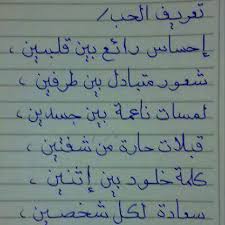 تعريف الحب /
إحساس رائع بين قلبين ،
شعور متبادل بين طرفين ،
لمسات ناعمة بين جسدين ،
قبلات حارة من شفتين ،
كلمة خلود بين إثنين ،
سعادة لكل شخصين ،